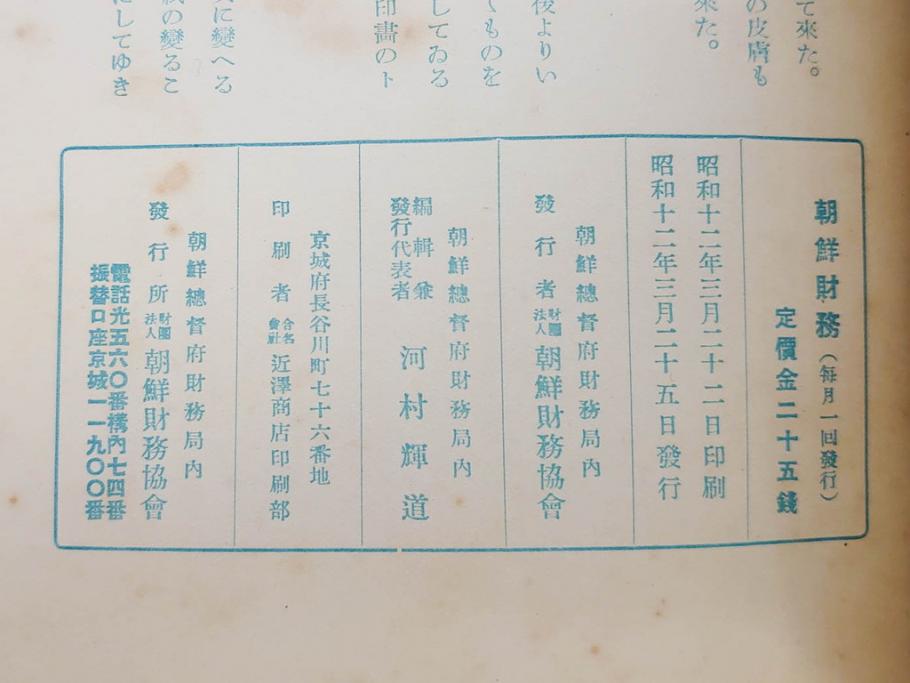 て來た。
の皮膚も
來た。
後よりい
くものを
してゐる
印畫のト
に變へる
眞の變るこ
にしてゆき
朝鮮財務（每月一回發行）
定價金二十五錢
昭和十二年三月二十二日印刷
昭和十二年三月二十五日發行
朝鮮總督府財務局內
發行者 財團法人 朝鮮財務協會
朝鮮總督府財務局內
編輯兼發行代表者 河村輝道
京城府長谷川町七十六番地
印刷者 合名會社 近澤商店印刷部
朝鮮總督府財務局內
發行所 財團法人 朝鮮財務協會
電話光五六〇番構內七四番
振替口座京城一一九〇〇番